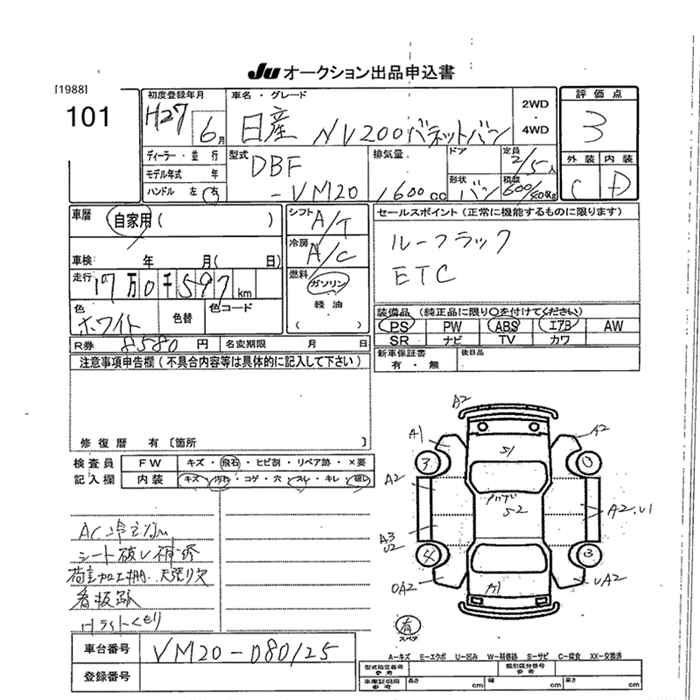 Ju オークション出品申込書
[1988]
101
初度登録年月
H27
6月
車名・グレード
日産 NV200バネットバン
2WD
・
4WD
評価点
3
ディーラー・並行
モデル年式 年
ハンドル 左 右
型式
DBF
-VM20
排気量
1600cc
ドア
形状
バン
定員
2/5人
積載
600/ kg
外装 内装
C D
車歴
自家用( )
車検 年 月( 日)
走行
17万0千597km
色
ホワイト
色替
色コード
シフト
A/T
冷房
A/C
燃料
ガソリン
軽油
( )
セールスポイント(正常に機能するものに限ります)
ルーフラック
ETC
装備品(純正品に限り○を付けてください)
PS PW ABS エアB AW
SR ナビ TV カワ
R券 8580円
名変期限 月 日
新車保証書
有・無
後日品
注意事項申告欄(不具合内容等は具体的に記入して下さい)
修復歴 有〔箇所 〕
検査員
記入欄
FW キズ・飛石・ヒビ割・リペア跡・×要
内装 キズ・汚れ・コゲ・穴・スレ・キレ・破レ
AC冷えない
シート破レ補修
荷室加工棚・天張り欠
看板跡
Hライトくもり
A2
A1
A2
S1
3
A2
ルーフ
S2
A2.U1
A3
U2
4
3
A1
UA2
有
スペア
A-キズ E-エクボ U-凹み W-補修跡 S-サビ C-腐食 XX-交換済
車台番号
VM20-080125
登録番号
型式指定番号
参考
類別区分番号
参考
車庫証明用
参考
長 cm
幅 cm
高 cm